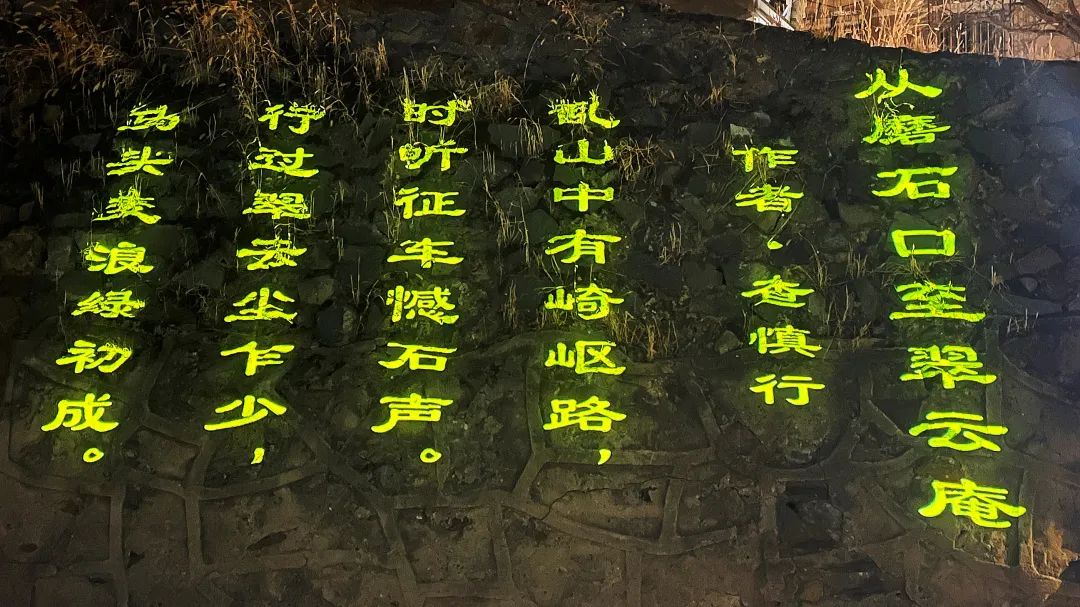 从磨石口至翠云庵
作者·查慎行
乱山中有崎岖路，
时听征车憾石声。
行过翠云尘乍少，
马头麦浪绿初成。